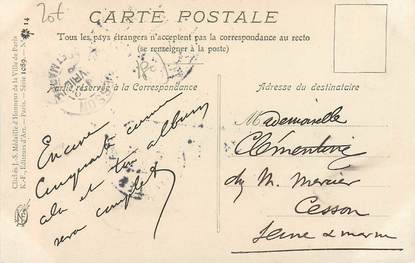 CARTE POSTALE
Tous les pays étrangers n'acceptent pas la correspondance au recto
(se renseigner à la poste)
Partie réservée à la Correspondance
Adresse du destinataire
Encore
Cinquante comme
ala et ton album
sera complet
Mademoiselle
Clémentine
M. Mercier
Cesson
Seine & Marne
Cliché J.-S. Médaille d'Honneur de la Ville de Paris
K.-F., Editeurs d'Art. - Paris. - Série 1089. - N° 14